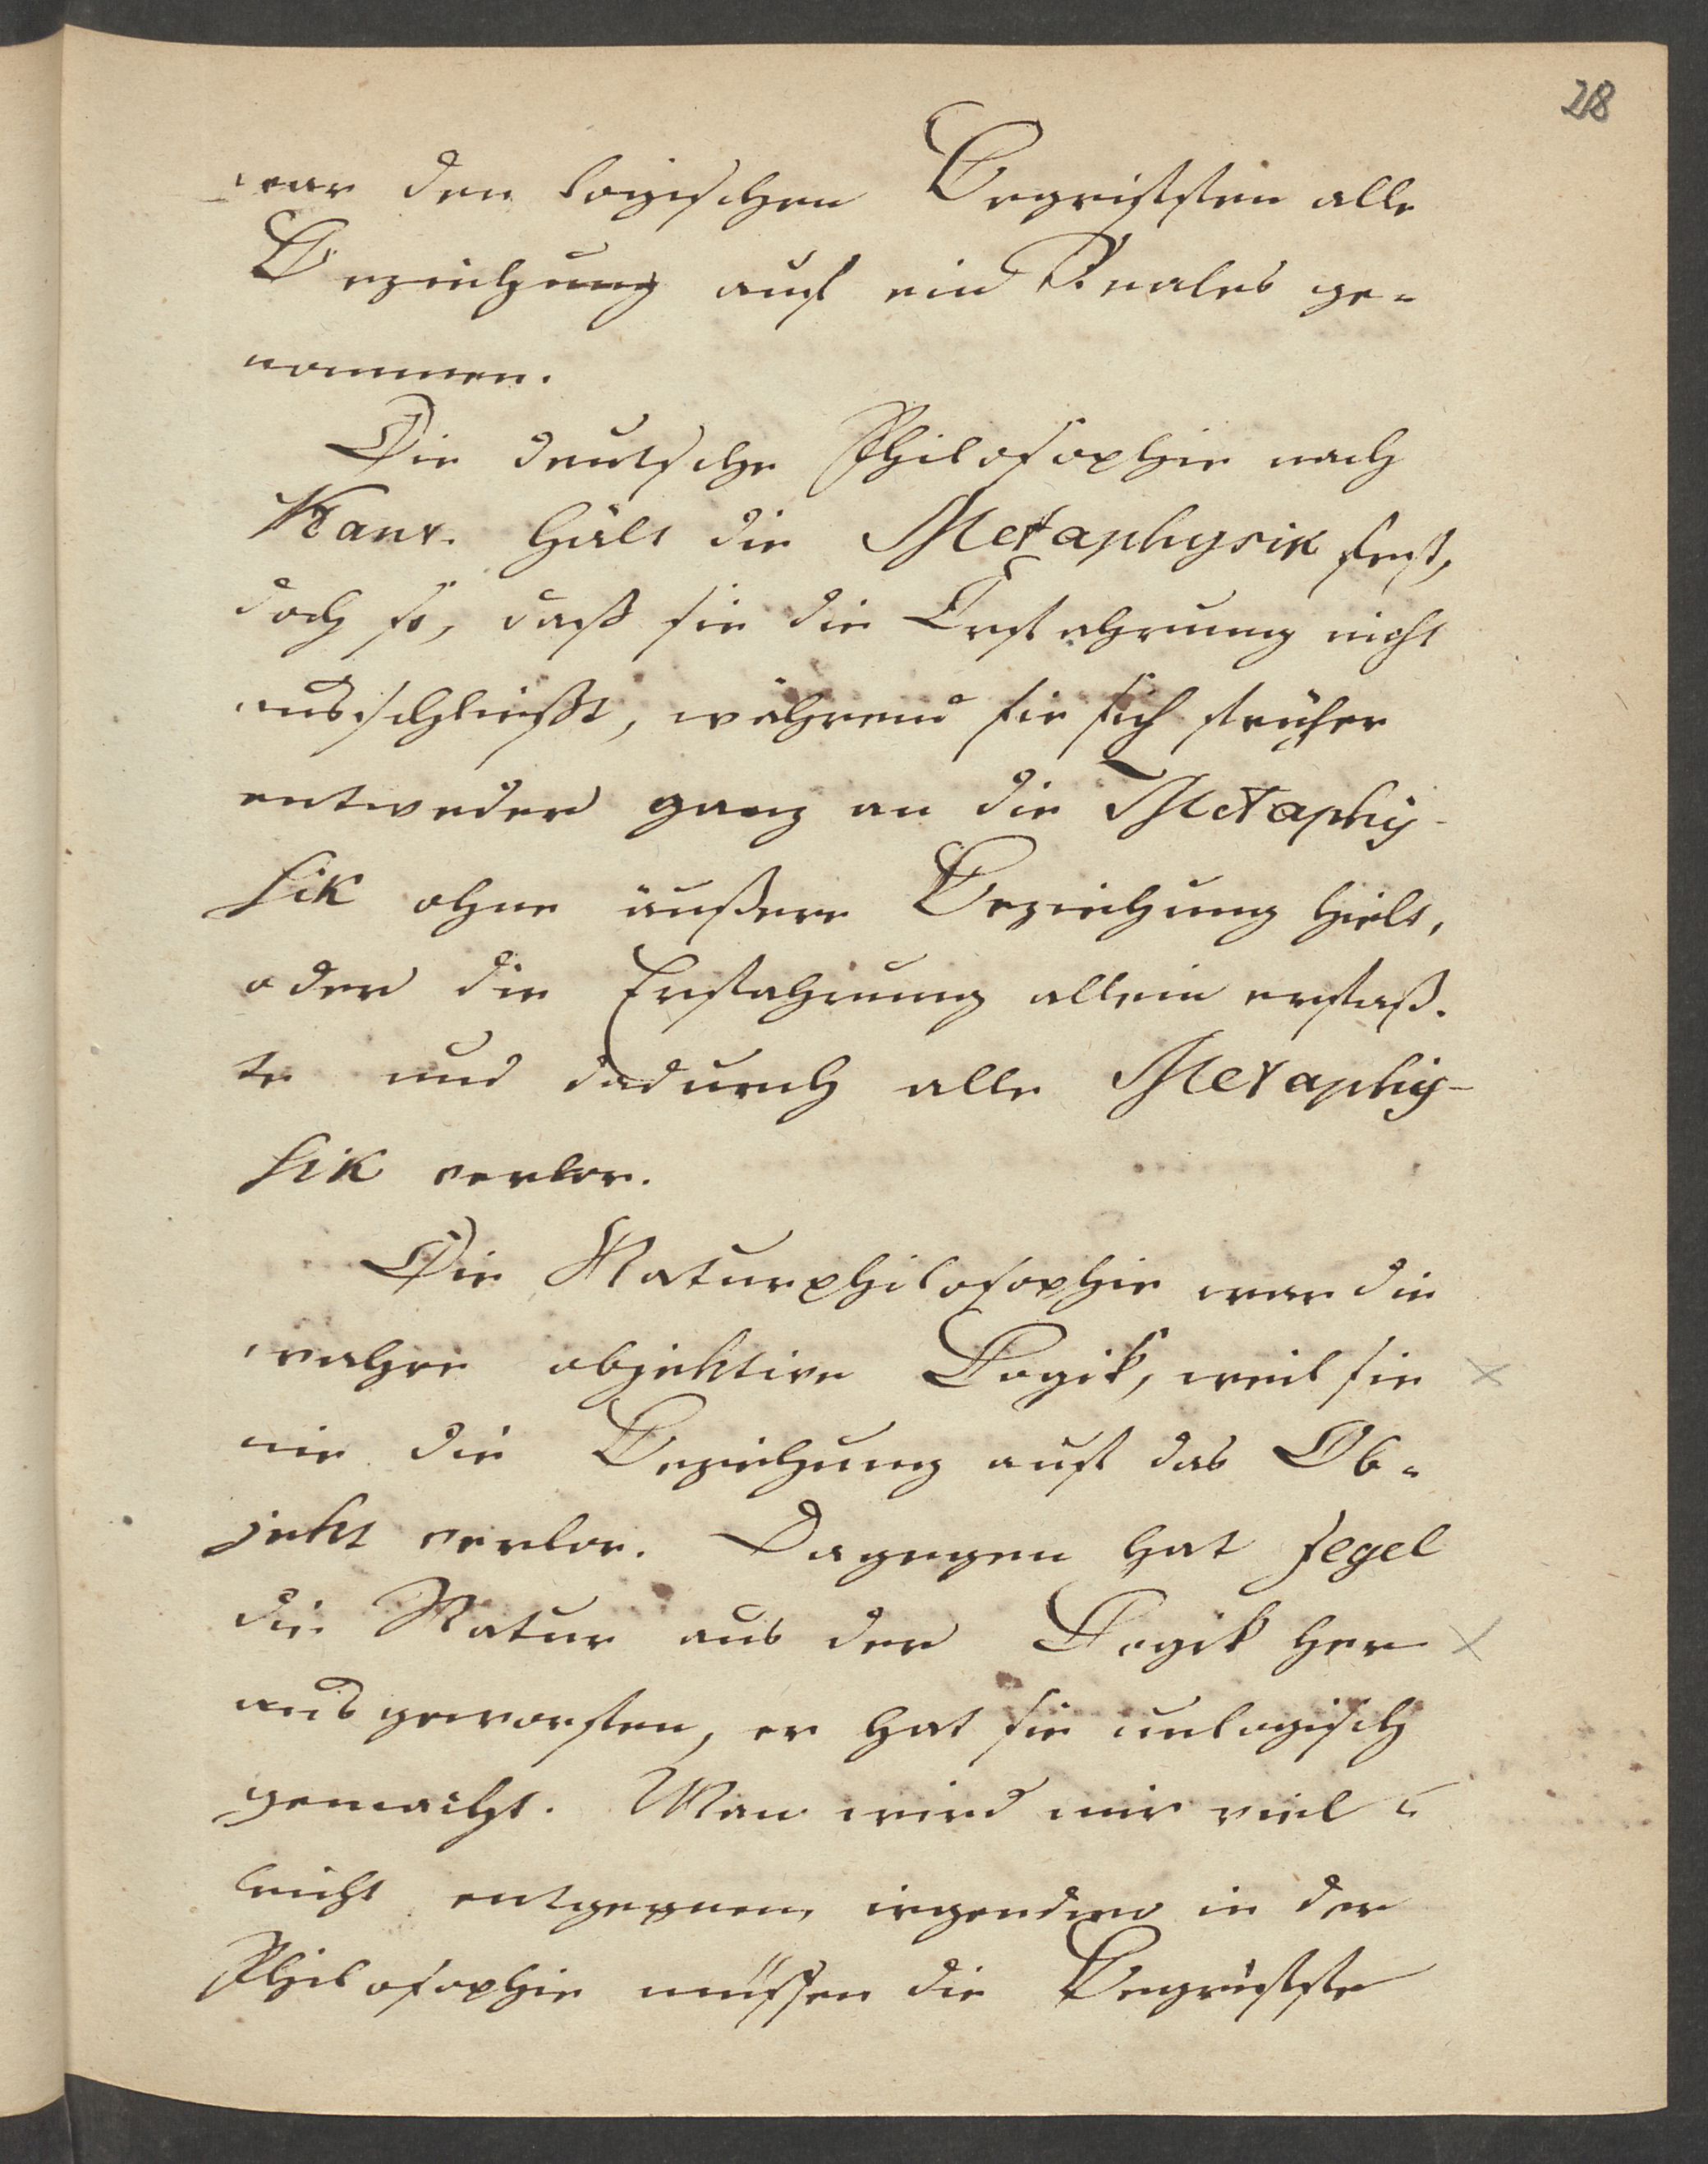 28
war den logischen Begriffen alle
Beziehung auf ein Reales ge-
nommen.
Die deutsche Philosophie nach
Kant. hält die Metaphysik fest,
doch so, daß sie die Erfahrung nicht
ausschließt, während sie sich früher
entweder ganz an die Metaphy-
sik ohne äußere Beziehung hielt,
oder die Erfahrung allein erfaß-
te und dadurch alle Metaphy-
sik verlor.
Die Naturphilosophie war die
wahre objektive Logik, weil sie
nie die Beziehung auf das Ob-
jekt verlor. Dagegen hat Hegel
die Natur aus der Logik her
ausgeworfen, er hat sie unlogisch
gemacht. Man wird mir viel-
leicht entgegnen, irgendwo in der
Philosophie müssen die Begriffe